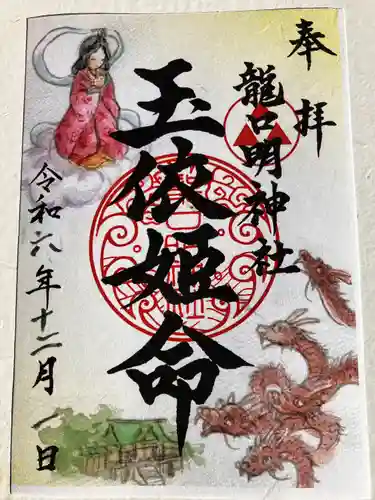 奉拝
龍口明神社
玉依姫命
令和六年十二月一日